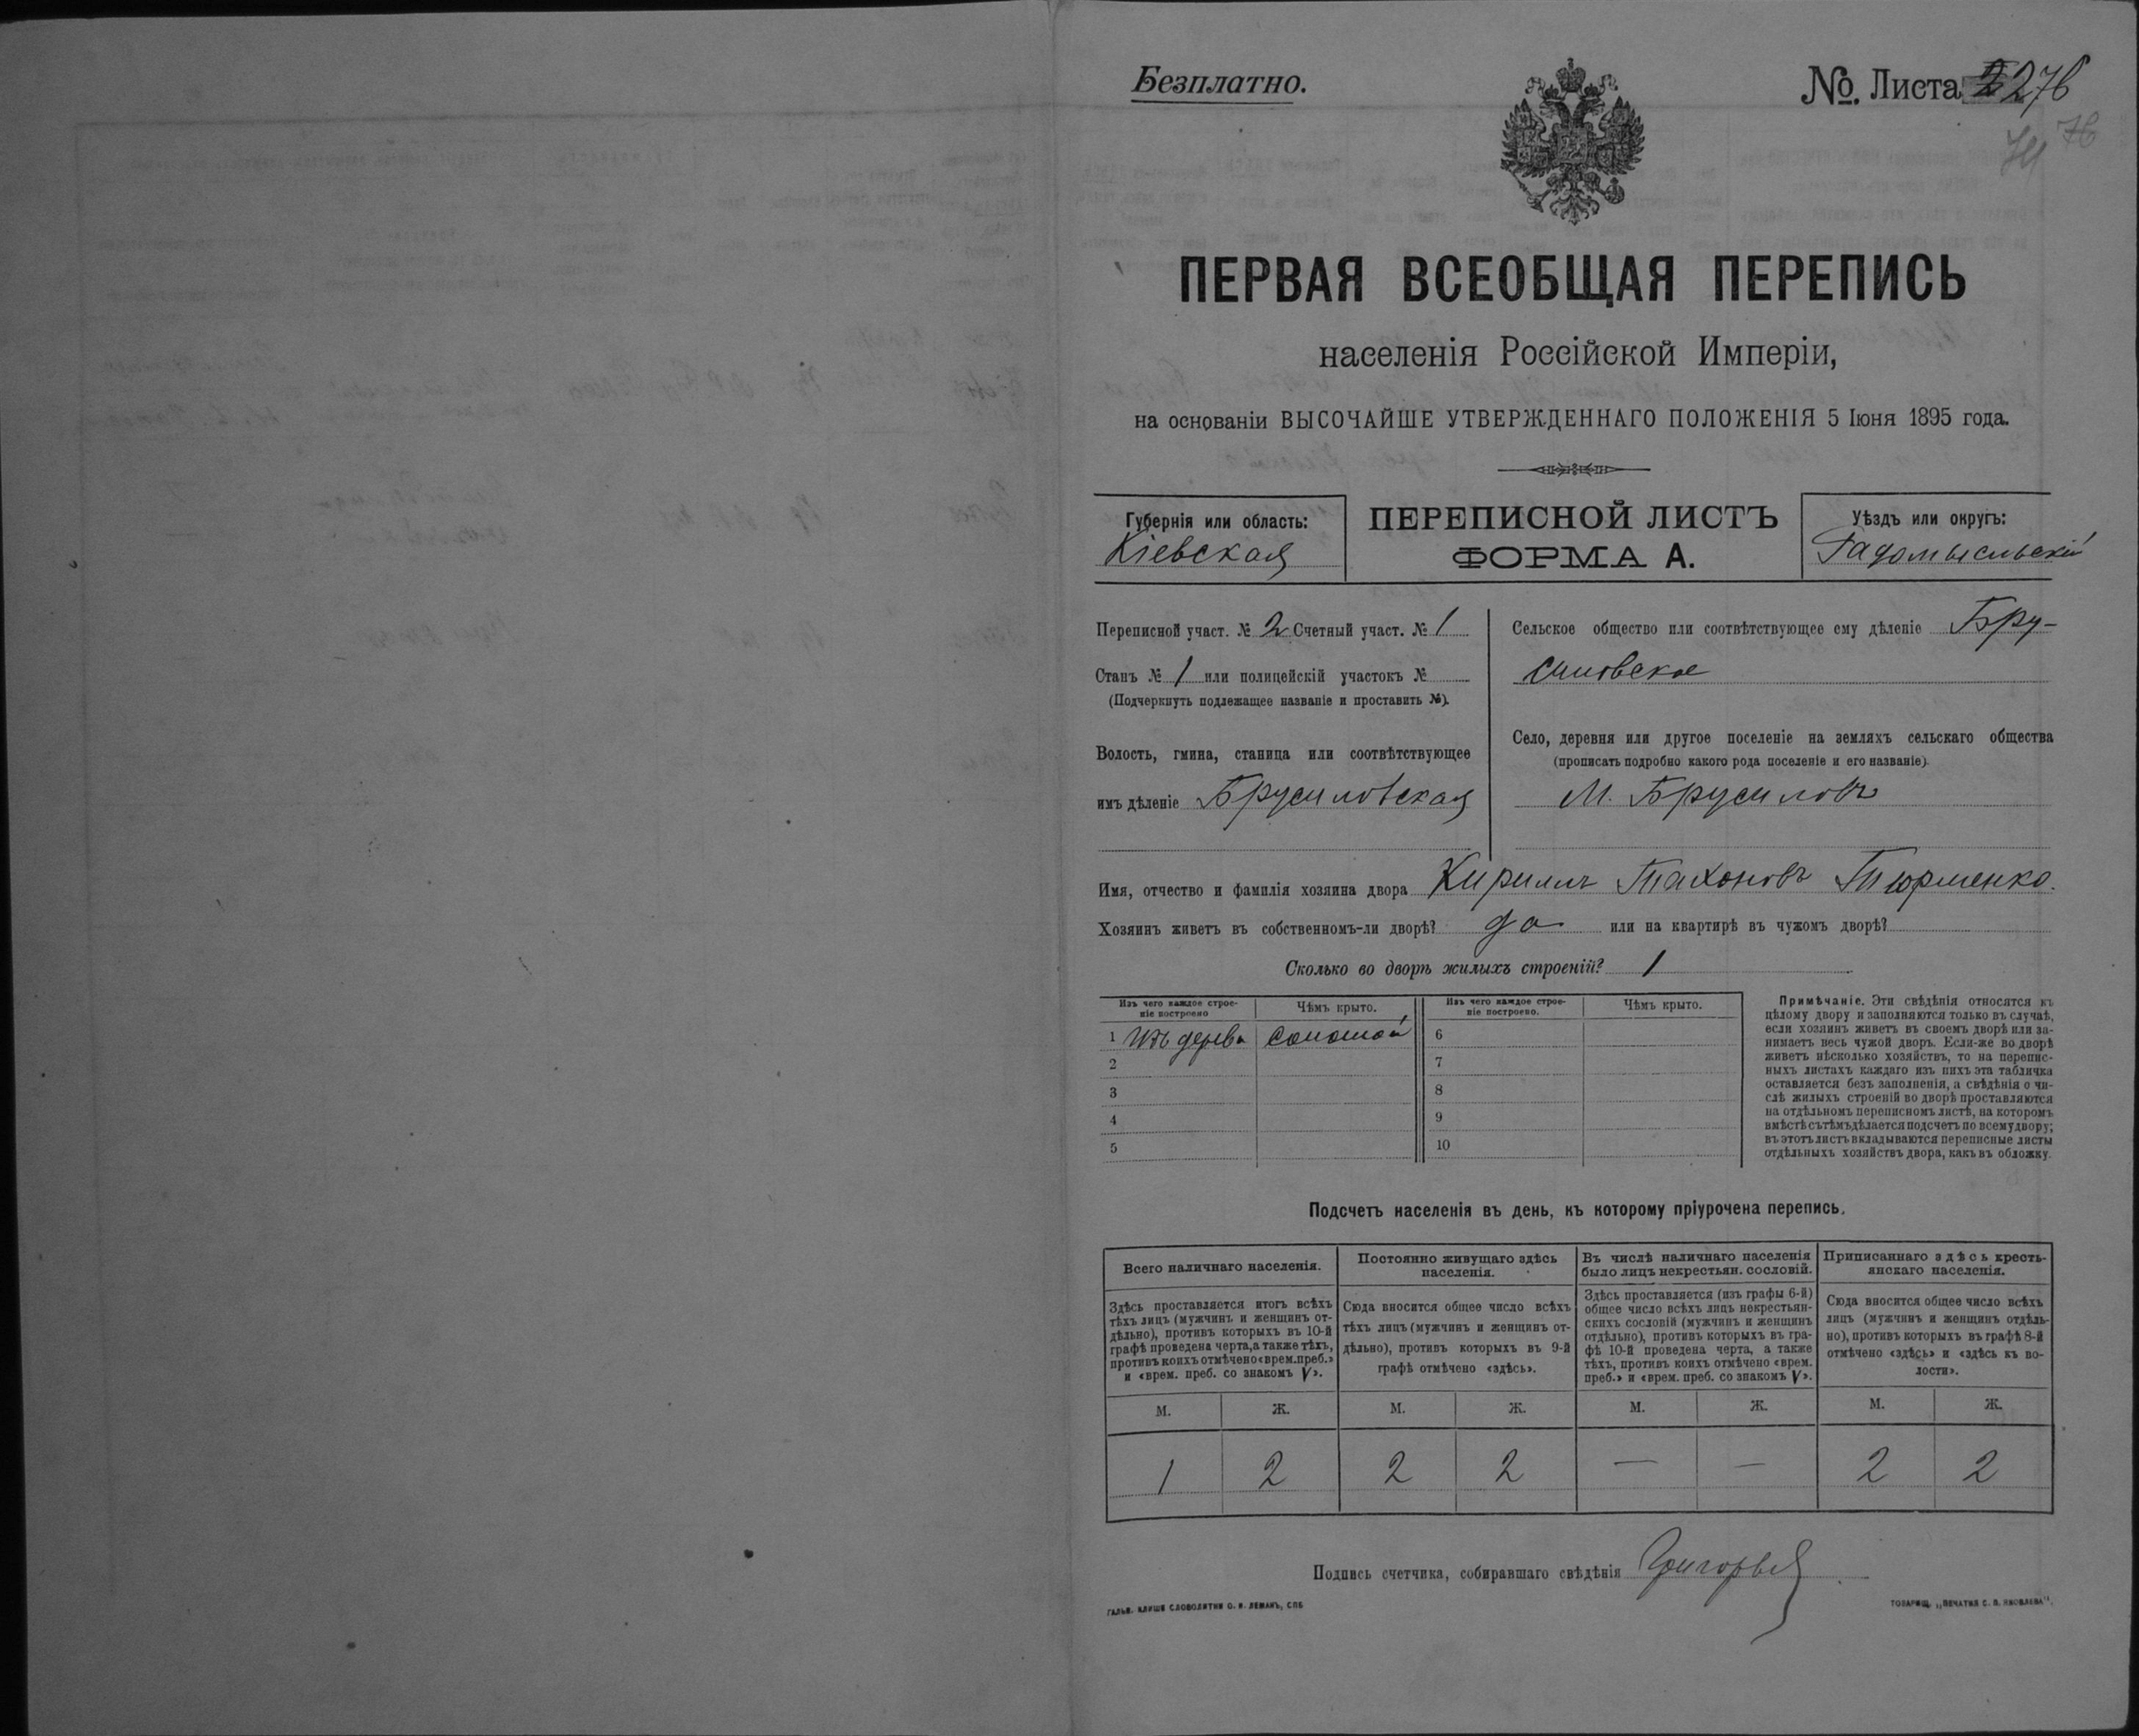 Безплатно.
№. Листа 276
76
ПЕРВАЯ ВСЕОБЩАЯ ПЕРЕПИСЬ
населенія Россійской Имперіи,
на основаніи ВЫСОЧАЙШЕ УТВЕРЖДЕННАГО ПОЛОЖЕНІЯ 5 Іюня 1895 года.
Губернія или область:
Кіевская
ПЕРЕПИСНОЙ ЛИСТЪ
ФОРМА А.
Уѣздъ или округъ:
Радомысльскій
Переписной участ. № 2 Счетный участ. № 1
Станъ № 1 или полицейскій участокъ №
(Подчеркнуть подлежащее названіе и проставить №).
Волость, гмина, станица или соотвѣтствующее
имъ дѣленіе Брусиловская
Сельское общество или соотвѣтствующее ему дѣленіе Бру-
силовское
Село, деревня или другое поселеніе на земляхъ сельскаго общества
(прописать подробно какого рода поселеніе и его названіе).
М. Брусиловъ
Имя, отчество и фамилія хозяина двора Кириллъ Тахоновъ Тюрменко.
Хозяинъ живетъ въ собственномъ-ли дворѣ? да или на квартирѣ въ чужомъ дворѣ?
Сколько во дворѣ жилыхъ строеній? 1
Изъ чего каждое строе-
ніе построено
Чѣмъ крыто.
Изъ чего каждое строе-
ніе построено.
Чѣмъ крыто.
1 Изъ дерева соломой 6
2 7
3 8
4 9
5 10
Примѣчаніе. Эти свѣдѣнія относятся къ
цѣлому двору и заполняются только въ случаѣ,
если хозяинъ живетъ въ своемъ дворѣ или за-
нимаетъ весь чужой дворъ. Если-же во дворѣ
живетъ нѣсколько хозяйствъ, то на перепис-
ныхъ листахъ каждаго изъ нихъ эта табличка
оставляется безъ заполненія, а свѣдѣнія о чи-
слѣ жилыхъ строеній во дворѣ проставляются
на отдѣльномъ переписномъ листѣ, на которомъ
вмѣстѣ съ тѣмъ дѣлается подсчетъ по всему двору;
въ этотъ листъ вкладываются переписные листы
отдѣльныхъ хозяйствъ двора, какъ въ обложку.
Подсчетъ населенія въ день, къ которому пріурочена перепись.
Всего наличнаго населенія.
Здѣсь проставляется итогъ всѣхъ
тѣхъ лицъ (мужчинъ и женщинъ от-
дѣльно), противъ которыхъ въ 10-й
графѣ проведена черта, а также тѣхъ,
противъ коихъ отмѣчено «врем. преб.»
и «врем. преб. со знакомъ V».
Постоянно живущаго здѣсь
населенія.
Сюда вносится общее число всѣхъ
тѣхъ лицъ (мужчинъ и женщинъ от-
дѣльно), противъ которыхъ въ 9-й
графѣ отмѣчено «здѣсь».
Въ числѣ наличнаго населенія
было лицъ некрестьян. сословій.
Здѣсь проставляется (изъ графы 6-й)
общее число всѣхъ лицъ некрестьян-
скихъ сословій (мужчинъ и женщинъ
отдѣльно), противъ которыхъ въ гра-
фѣ 10-й проведена черта, а также
тѣхъ, противъ коихъ отмѣчено «врем.
преб.» и «врем. преб. со знакомъ V».
Приписаннаго здѣсь кресть-
янскаго населенія.
Сюда вносится общее число всѣхъ
лицъ (мужчинъ и женщинъ отдѣль-
но), противъ которыхъ въ графѣ 8-й
отмѣчено «здѣсь» и «здѣсь къ во-
лости».
М. Ж. М. Ж. М. Ж. М. Ж.
1 2 2 2 — — 2 2
Подпись счетчика, собиравшаго свѣдѣнія
ГАЛЬВ. КЛИШЕ СЛОВОЛИТНИ О. И. ЛЕМАНЪ, СПБ
ТОВАРИЩ. „ПЕЧАТНЯ С. П. ЯКОВЛЕВА".